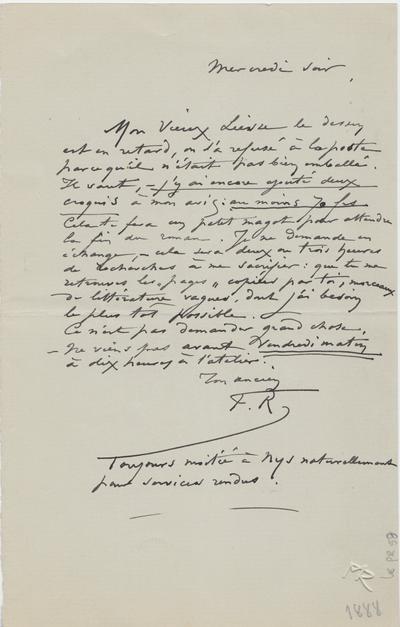 Mercredi soir,
Mon vieux Liesse le dessin
est en retard, on s'a refusé à la poste
parce qu'il n'était pas bien emballé.
Il vaut, – j'y ai encore ajouté deux
croquis à mon avis : au moins 70 frs
Cela te fera un petit magot pour attendre
la fin du roman. Je ne demande en
échange, – cela sera deux ou trois heures
de recherches à me sacrifier : que tu me
retrouves les pages, copiées par toi, morceaux
de littérature vagues, dont j'ai besoin
le plus tot possible.
Ce n'est pas demander grand chose,
– Ne viens pas avant Vendredi matin
à dix heures à l'atelier.
Ton ancien
F. R
Toujours moitié à Nys naturellement
pour services rendus.
LE PR 59
1888